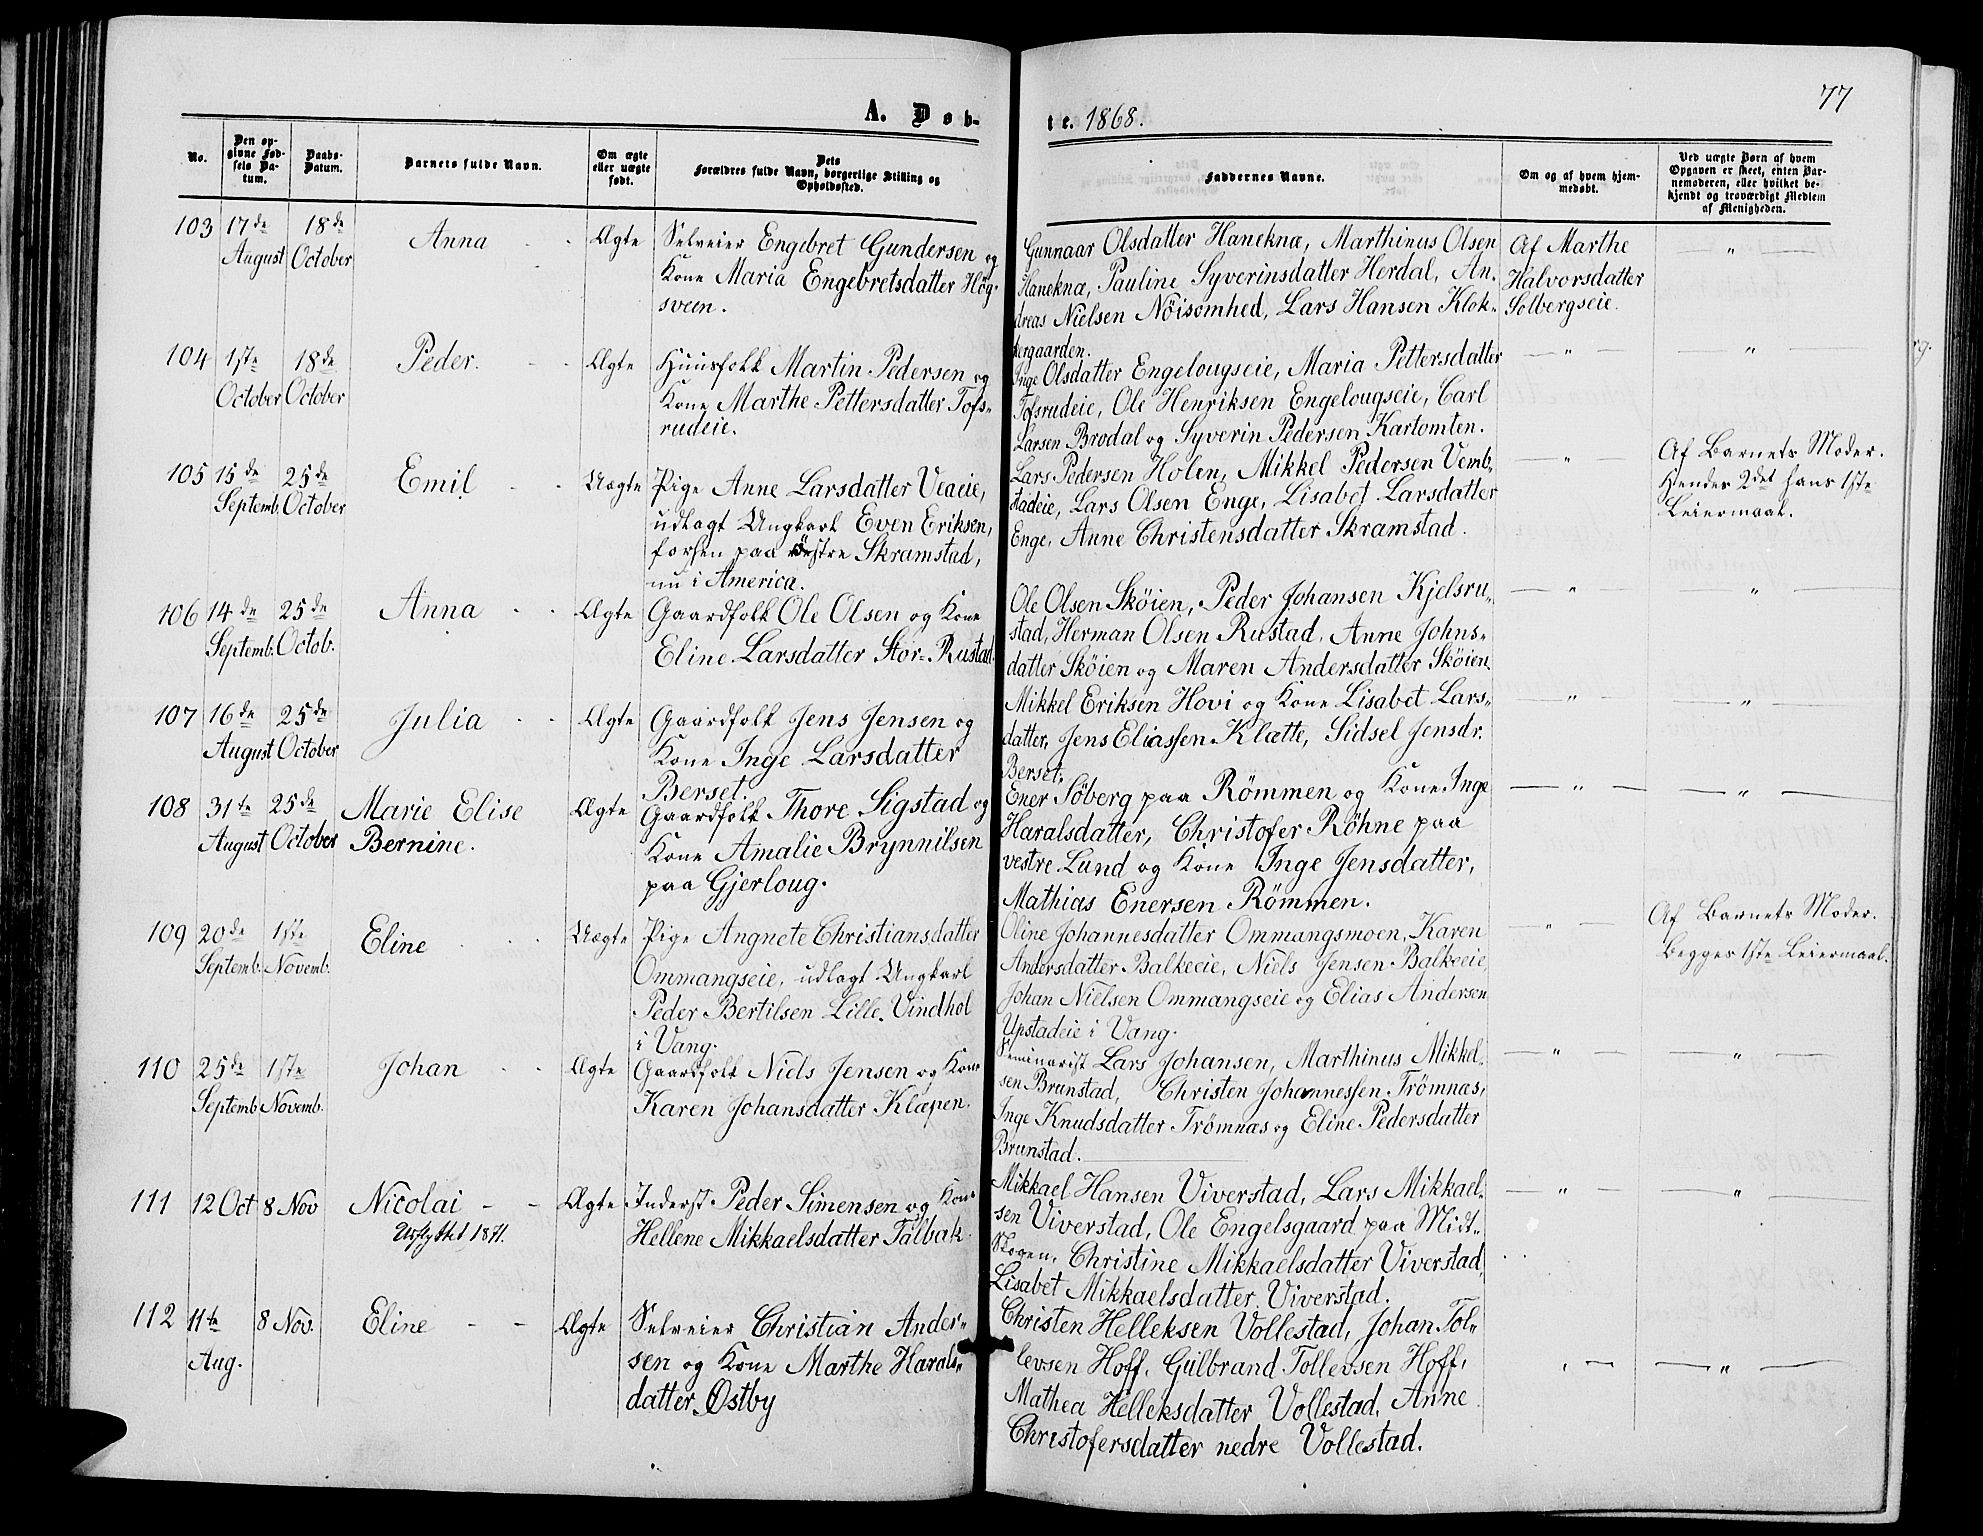 77
A. Døb-
te. 1868.
No.
Den op-
givne Fød-
sels Da-
tum.
Daabs-
Datum.
Barnets fulde Navn.
Om ægte
eller uægte
født.
Dets
Forældres fulde Navn, borgerlige Stilling og
Opholdssted.
Faddernes Navne.
Om og af hvem hjem-
medøbt.
Ved uægte Børn af hvem
Opgaven er skeet, enten Bar-
nemoderen, eller hvilket be-
kjendt og troværdigt Medlem
af Menigheden.
103 17de August 18de October Anna - - Ægte
Selveier Engebret Gundersen og
Kone Maria Engebretsdatter Høg-
sveen.
Gunnaar Olsdatter Haneknæ, Marthinus Olsen
Haneknæ, Pauline Syverinsdatter Herdal, An-
dreas Nielsen Nöisomhed, Lars Hansen Klok-
kergaarden.
Af Marthe
Halvorsdatter
Solbergseie.
— " —
104 1ste October 18de October Peder. - - Ægte
Huusfolk Martin Pedersen og
Kone Marthe Pettersdatter Tofs-
rudeie.
Inge Olsdatter Engelougseie, Maria Pettersdatter
Tofsrudeie, Ole Henriksen Engelougseie, Carl
Larsen Brodal og Syverin Pedersen Kartomten.
— " —
— " —
105 15de Septemb. 25de October Emil - - Uægte
Pige Anne Larsdatter Veaeie,
udlagt Ungkarl Even Eriksen,
forhen paa östre Skramstad,
nu i America.
Lars Pedersen Holen, Mikkel Pedersen Vemb-
stadeie, Lars Olsen Enge, Lisabet Larsdatter
Enge, Anne Christensdatter Skramstad.
— " —
Af Barnets Moder.
Hendes 2det hans 1ste
Leiermaal.
106 14de Septemb. 25de Octob. Anna - - Ægte
Gaardfolk Ole Olsen og Kone
Eline Larsdatter Stor-Rustad.
Ole Olsen Sköien, Peder Johansen Kjelsru-
stad, Herman Olsen Rustad, Anne Johns-
datter Sköien og Maren Andersdatter Sköien.
— " —
" —
107 16de August 25de October Julia - - Ægte
Gaardfolk Jens Jensen og
Kone Inge Larsdatter
Berset.
Mikkel Eriksen Hovi og Kone Lisabet Lars-
datter, Jens Eliassen Klætte, Sidsel Jensdr.
Berset.
— " —
— " —
108 31te August 25de October Marie Elise
Bernine. Ægte
Gaardfolk Thore Sigstad og
Kone Amalie Brynnilsen
paa Gjerloug.
Ener Söberg paa Römmen og Kone Inge
Haralsdatter, Christofer Röhne paa
vestre Lund og Kone Inge Jensdatter,
Mathias Enersen Römmen.
— " —
— " —
109 20de Septemb. 1ste Novemb. Eline - - - Uægte
Pige Angnete Christiansdatter
Ommangseie, udlagt Ungkarl
Peder Bertilsen Lille-Vindhol
i Vang.
Oline Johannesdatter Ommangsmoen, Karen
Andersdatter Balkeeie, Niels Jensen Balkeeie,
Johan Nielsen Ommangseie og Elias Andersen
Upstadeie i Vang.
— " —
Af Barnets Moder.
Begges 1ste Leiermaal.
110 25de Septemb. 1ste Novemb. Johan - - Ægte
Gaardfolk Niels Jensen og Kone
Karen Johansdatter Klæpen.
Seminarist Lars Johansen, Marthinus Mikkel-
sen Brunstad, Christen Johannessen Trömnæs,
Inge Knudsdatter Trömnæs og Eline Pedersdatter
Brunstad.
— " —
— " —
111 12 Oct 8 Nov Nicolai - - Ægte
Udflyttet 1871.
Inderst Peder Simensen og Kone
Hellene Mikkaelsdatter Talbak.
Mikkael Hansen Viverstad, Lars Mikkael-
sen Viverstad, Ole Engelsgaard paa Midt-
skogen, Christine Mikkaelsdatter Viverstad,
Lisabet Mikkaelsdatter Viverstad.
— " —
— " —
112 11te Aug. 8 Nov. Eline - - Ægte
Selveier Christian Ander-
sen og Kone Marthe Harals-
datter Østby
Christen Helleksen Vollestad, Johan Tol-
levsen Hoff, Gulbrand Tollevsen Hoff,
Mathea Helleksdatter Vollestad, Anne
Christofersdatter nedre Vollestad.
" —
— " —